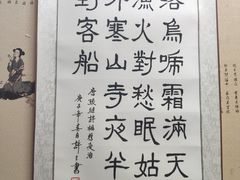 落烏啼霜滿天
漁火對愁眠姑
外寒山寺夜半
到客船
唐張繼詩楓橋夜泊